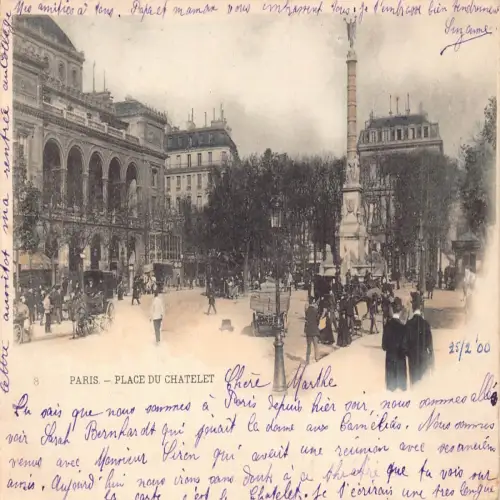 Mes amitiés à tous. Papa et maman vous embrassent tous, je t'embrasse bien tendrement
Suzanne
lettre aussitôt ma rentrée au Collège
25/2 '00
8
PARIS. - PLACE DU CHATELET
Chère Marthe
Tu sais que nous sommes à Paris depuis hier soir, nous sommes allés
voir Sarah Bernhardt qui jouait la dame aux Camélias. Nous sommes
venus avec Monsieur Siren qui avait une réunion avec ses anciens
amis. Aujourd'hui nous irons sans doute à ce théâtre que tu vois sur
la carte, c'est le Chatelet. Je t'écrirais une très longue